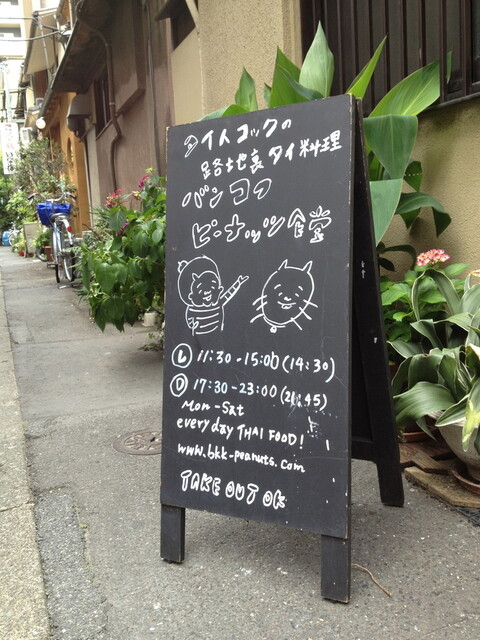 タイ人コックの
路地裏タイ料理
バンコク
ピーナッツ食堂
Ⓛ 11:30-15:00(14:30)
Ⓓ 17:30-23:00(21:45)
Mon-Sat
everyday THAI FOOD!
www.bkk-peanuts.com
TAKE OUT OK